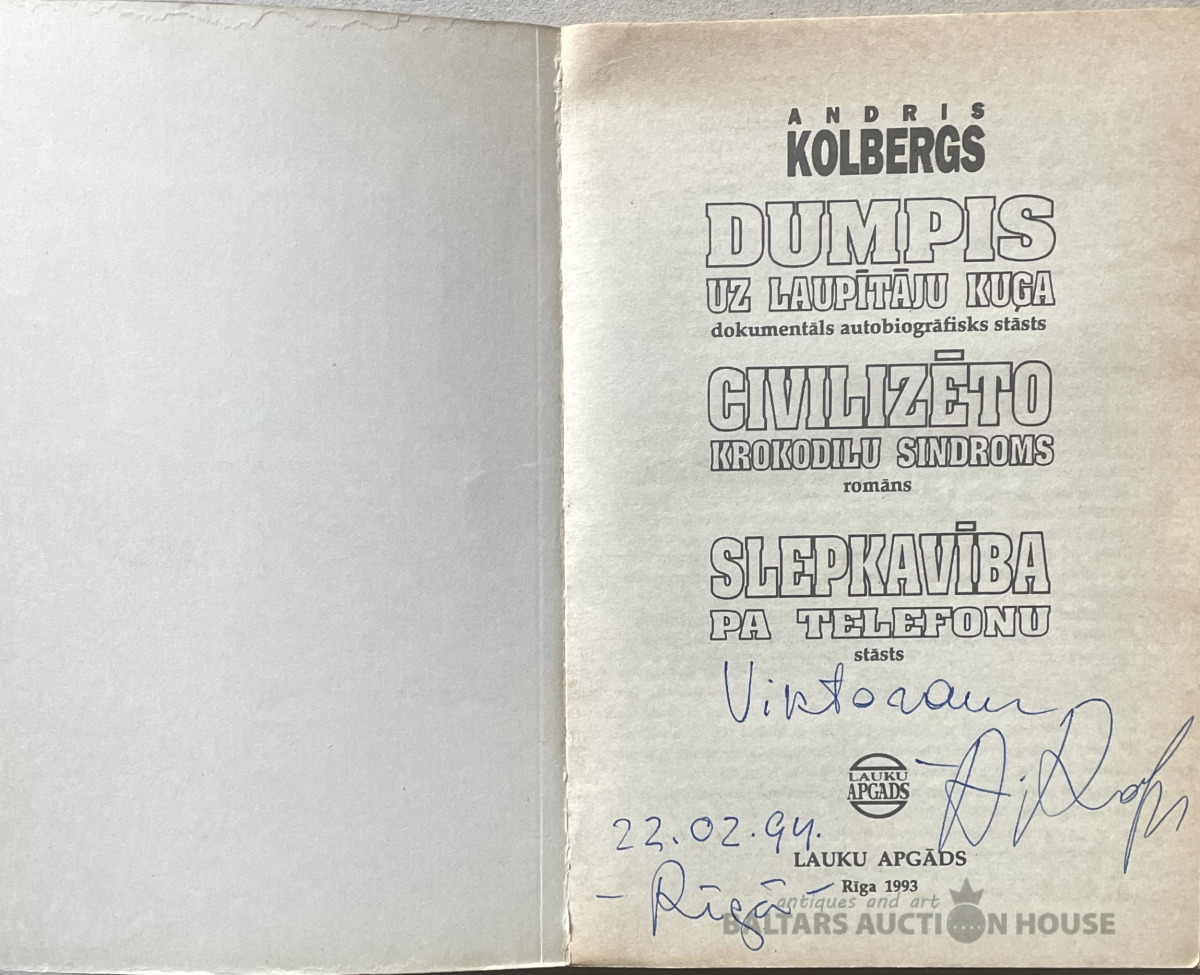 ANDRIS
KOLBERGS
DUMPIS
UZ LAUPĪTĀJU KUĢA
dokumentāls autobiogrāfisks stāsts
CIVILIZĒTO
KROKODILU SINDROMS
romāns
SLEPKAVĪBA
PA TELEFONU
stāsts
Viktoram
LAUKU
APGADS
22.02.94.
LAUKU APGĀDS
Rīga 1993
- Rīgā -
antiques and art
BALTARS AUCTION HOUSE